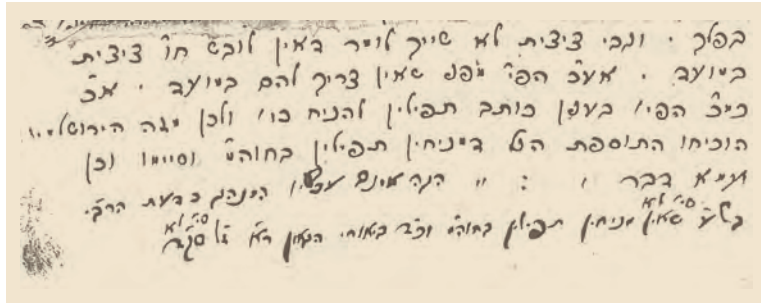 בפלך . וגבי ציצית לא שייך לומר דאין לובש חו׳ ציצית
במועד . אע״כ הפי׳ מפני שאין צריך להם במועד . א״כ
כמ״כ הפי׳ בענין כותב תפילין להניח כו׳ ולכן מזה הירושלמי
הוכיחו התוספת הנ״ל דמניחין תפילין בחוה״מ וסיימו וכן
דבר הנה המנהג כדעת הרב״י
בש״ע סי׳ ל״א שאין מניחין תפילין בחוה״מ וכ״כ ביאורי הגאון סי׳ ל״א